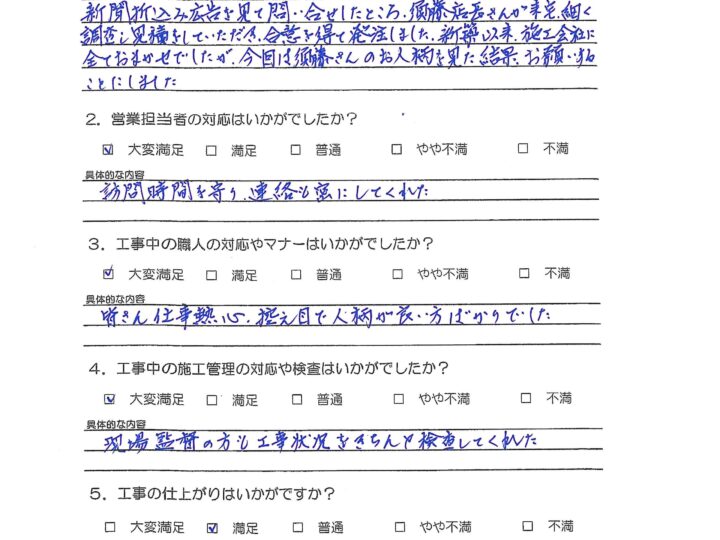 新聞折込み広告を見て問い合せしたところ、須藤店長さんが来宅、細く
調査し見積をしていただき、合意を得て発注しました。新築以来、施工会社に
全ておまかせでしたが、今回は須藤さんのお人柄を見た結果、お願いする
ことにしました
2. 営業担当者の対応はいかがでしたか?
☑ 大変満足 □ 満足 □ 普通 □ やや不満 □ 不満
具体的な内容
訪問時間を守り、連絡も密にしてくれた
3. 工事中の職人の対応やマナーはいかがでしたか?
☑ 大変満足 □ 満足 □ 普通 □ やや不満 □ 不満
具体的な内容
皆さん仕事熱心、控え目で人柄が良い方ばかりでした
4. 工事中の施工管理の対応や検査はいかがでしたか?
☑ 大変満足 □ 満足 □ 普通 □ やや不満 □ 不満
具体的な内容
現場監督の方も工事状況をきちんと検査してくれた
5. 工事の仕上がりはいかがですか?
□ 大変満足 ☑ 満足 □ 普通 □ やや不満 □ 不満